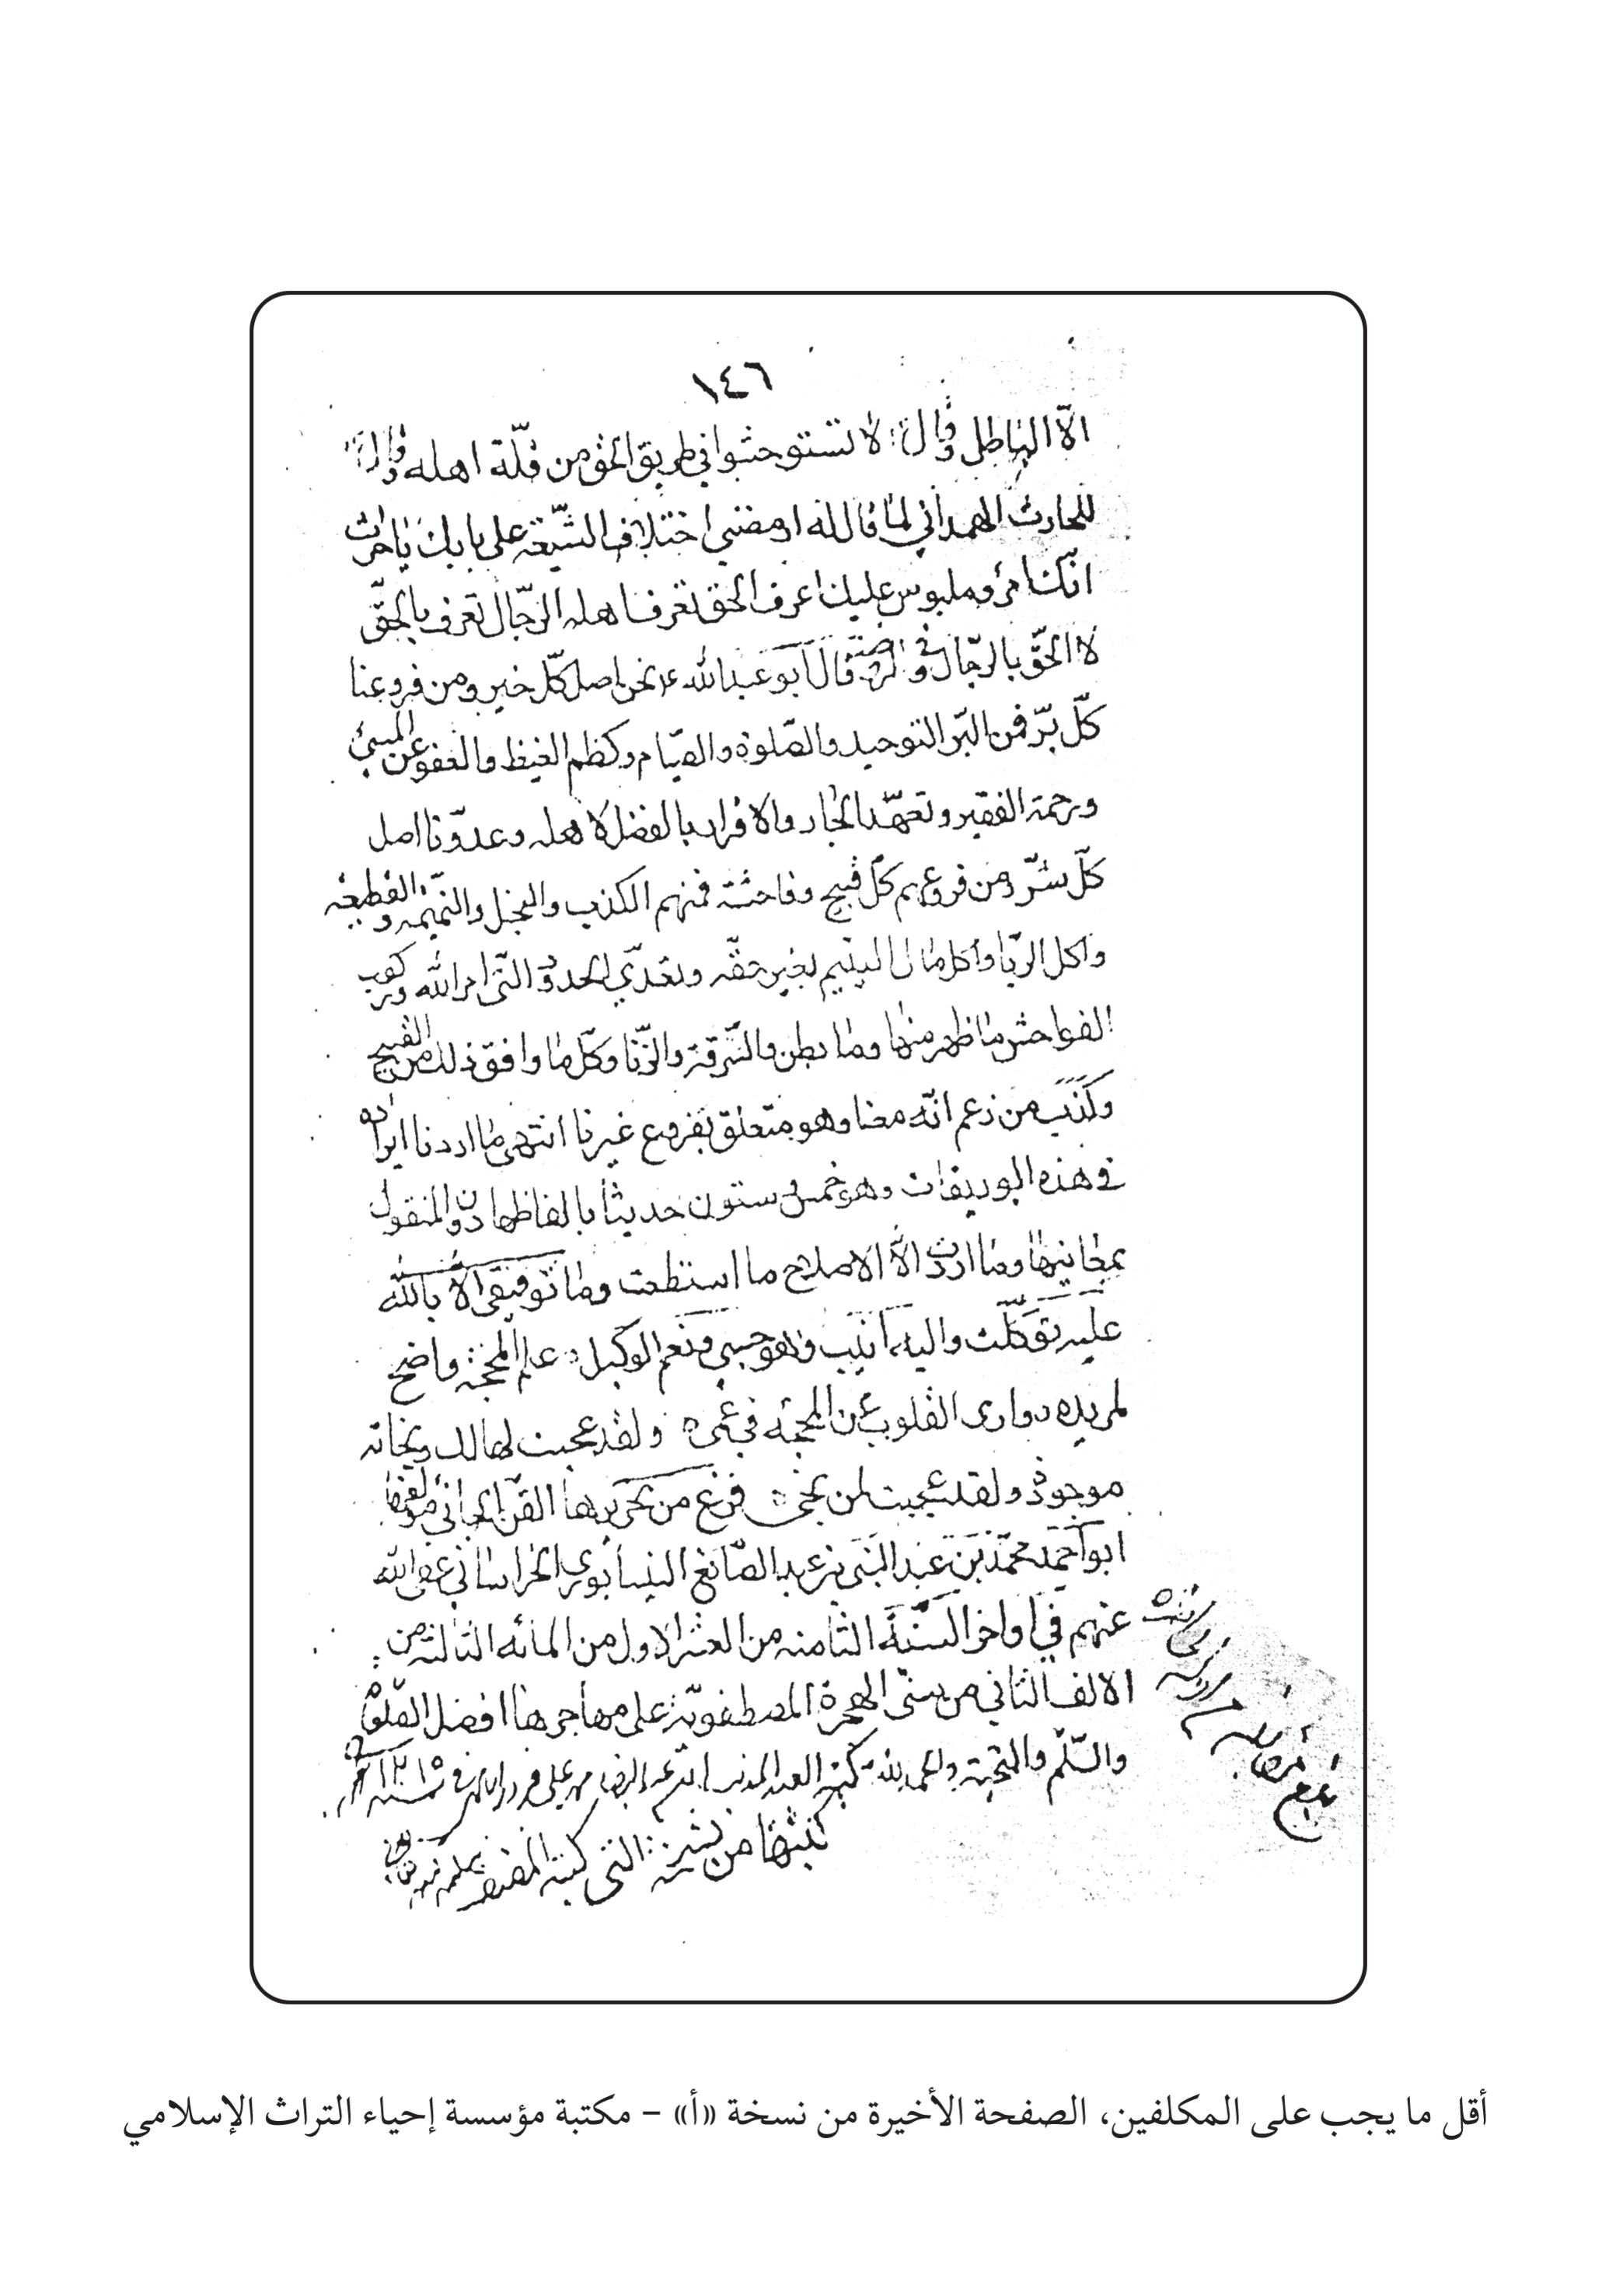 ١٤٦
الّا الباطل وقال ع لا تستوحشوا في طريق الحق من قلّة اهله وقال ع
للحارث الهمداني لمّا قال له ارمضني اختلاف الشّيعة على بابك يا حارث
انّك امرؤ ملبوس عليك اعرف الحق تعرف اهله الرّجال تعرف بالحقّ
لا الحقّ بالرّجال وفي قال ابو عبدالله ع نحن اصل كلّ خير ومن فروعنا
كلّ برّ فمن البرّ التوحيد والصّلوة والصّيام وكظم الغيظ والعفو عن المسيئ
ورحمة الفقير وتعهّد الجار والاقرار بالفضل لاهله وعدوّنا اصل
كلّ شرّ ومن فروعهم كلّ قبيح وفاحشة فمنهم الكذب والبخل والنّميمه والقطيعه
واكل الرّبا واكل مال اليتيم بغير حقّه وتعدّي الحدود الّتى امر الله وركوب
الفواحش ما ظهر منها وما بطن والسّرقة والزّنا وكلّ ما وافق ذلك من القبيح
وكذب من زعم انّه معنا وهو متعلّق بفروع غيرنا انتهى ما اردنا ايراده
في هذه الوريقات وهو خمس وستون حديثا بالفاظها دون المنقول
بمعانيها وما اردت الّا الاصلاح ما استطعت وما توفيقي الّا بالله
عليه توكّلت واليه انيب وهو حسبي ونعم الوكيل علم المحجّة واضح
لمريده وارى القلوب عن المحجّه في عمى ولقد عجبت لهالك ونجاته
موجودة ولقد عجبت لمن نجى فرغ من تحريرها القنّ الجاني مؤلفها
ابو احمد محمّد بن عبد النبي بن عبد الصّانع النيسابوري الخراساني عفى الله
عنهم في اواخر السّنة الثامنه من العشر الاول من المائه الثالثة من
الالف الثاني من سني الهجرة المصطفويّة على مهاجرها افضل الصّلوة
والسّلم والتحيّة والحمد لله كتبه العبد المذنب
كتبتها من نسخته التى كتبه المصنف
أقل ما يجب على المكلفين، الصفحة الأخيرة من نسخة «أ» – مكتبة مؤسسة إحياء التراث الإسلامي